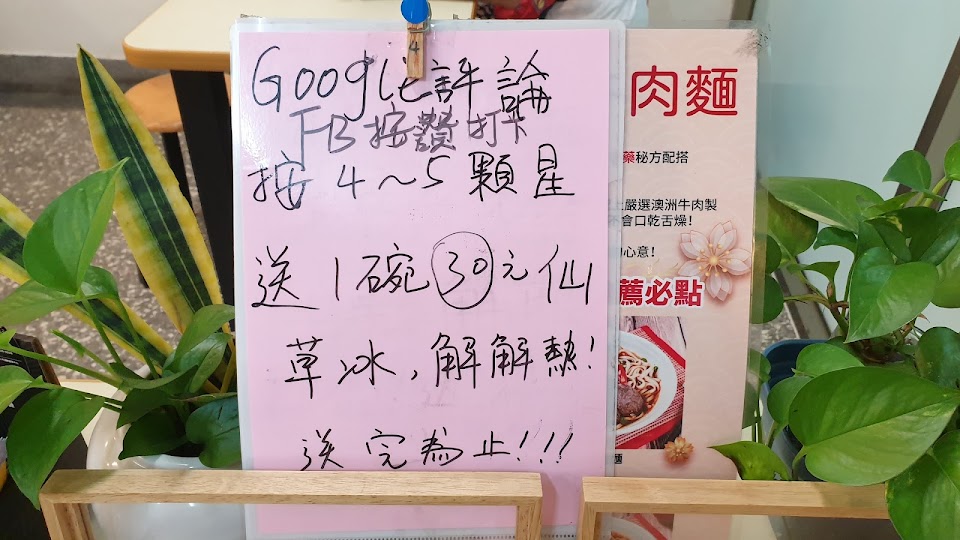 Google評論
FB按讚打卡
按4～5顆星
送1碗30元仙
草冰,解解熱!
送完為止!!!
4
肉麵
藥秘方配搭
嚴選澳洲牛肉製
會口乾舌燥!
心意!
薦必點
麵